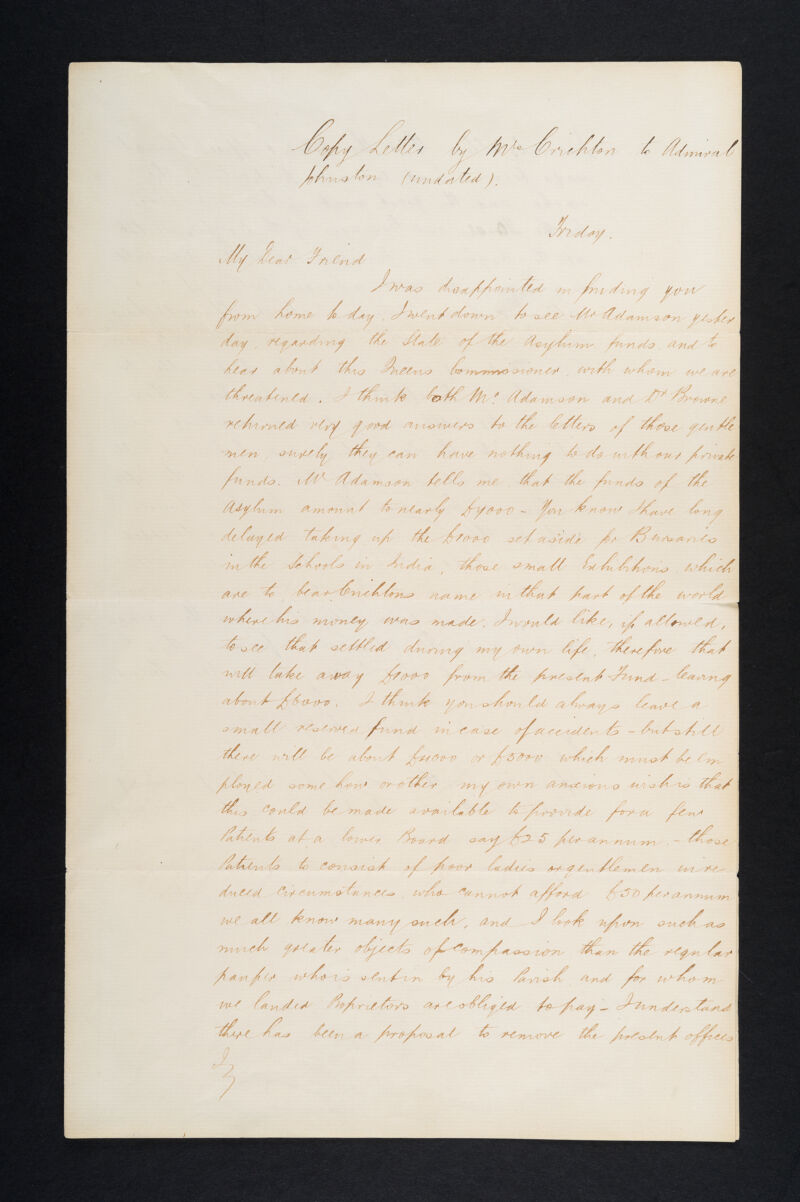 Copy Letter by Mrs Crichton to Admiral
Johnston (undated).
Friday.
My Dear Friend
I was disappointed in finding you
from home to day. I went down to see Mr Adamson yester
day, regarding the State of the Asylum funds, and to
hear about this Queens Commissioner, with whom we are
threatened. I think both Mr. Adamson and Dr Browne
returned very good answers to the letters of those gentle
men, surely they can have nothing to do with our private
funds. Mr Adamson tells me that the funds of the
Asylum amount to nearly - You know I have long
delayed taking up the £1000 set aside for Bursaries
in the Schools in India, those small Exhibitions which
are to bear Crichtons name in that part of the world
where his money was made. I would like, if allowed,
to see that settled during my own life, therefore that
will take away £1000 from the present Fund - leaving
about I think you should always leave a
small reserved fund in case of accidents - but still
there will be about £4000 or £5000 which must be Em
ployed some how or other, my own anxious wish is that
this could be made available to provide for a few
Patients at a lower Board say £25 per annum. - those
Patients to consist of poor ladies or gentlemen in re
duced circumstances, who cannot afford £50 per annum
we all know many such, and I look upon such as
much greater objects of compassion than the regular
pauper who is sent in by his Parish, and for whom
we landed Proprietors are obliged to pay - I understand
there has been a proposal to remove the present offices